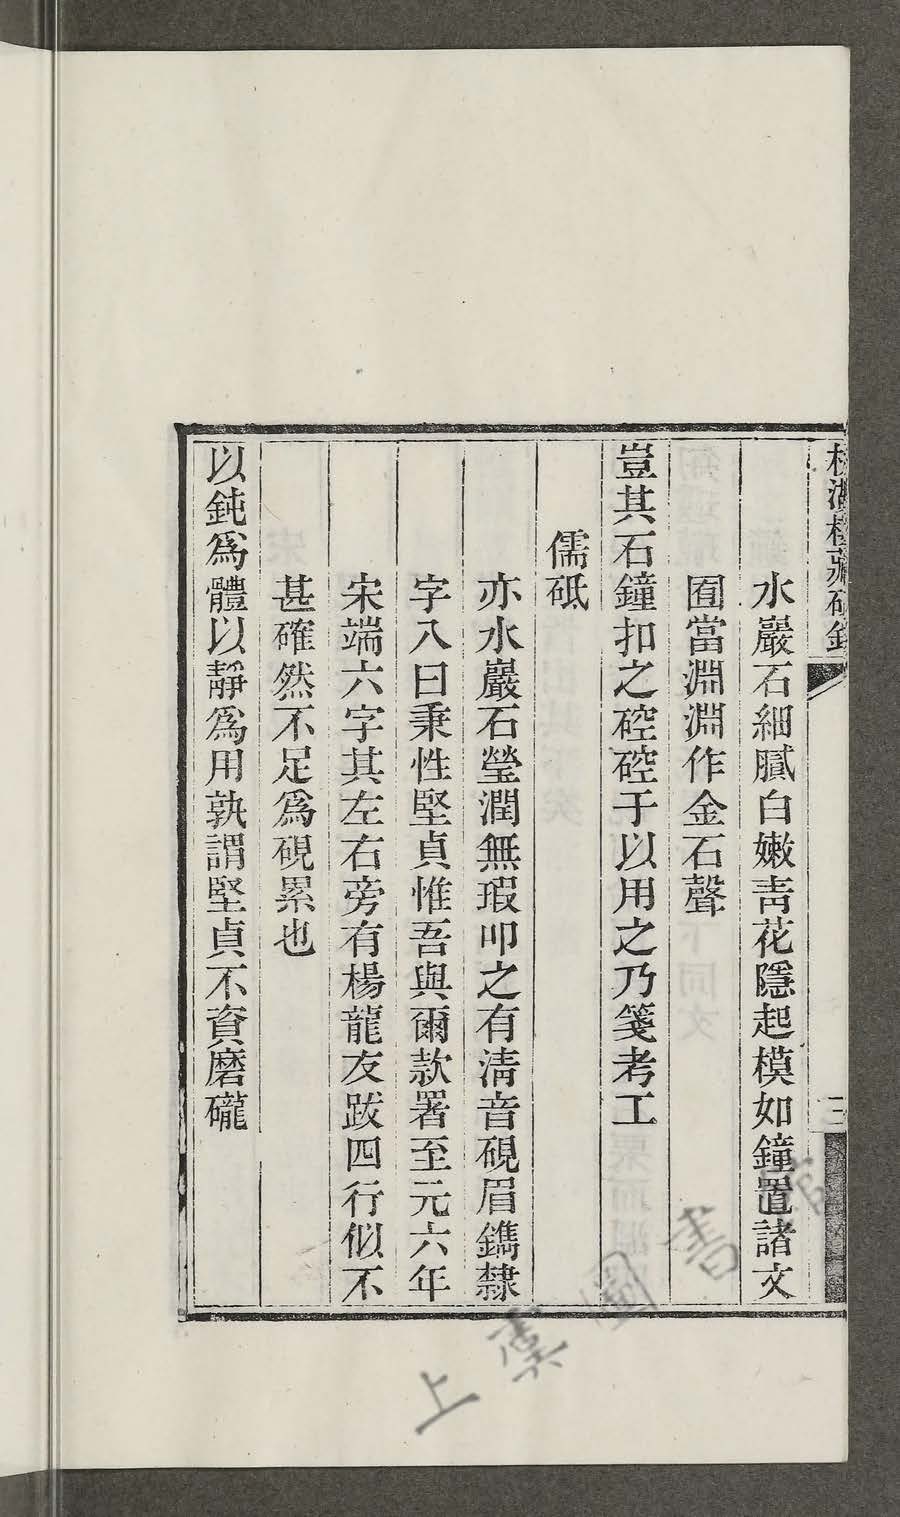 水巖石細膩白嫩靑花隱起模如鐘置諸文
囿當淵淵作金石聲
豈其石鐘扣之硿硿于以用之乃箋考工
儒砥
亦水巖石瑩潤無瑕叩之有淸音硯眉鐫隸
字八曰秉性堅貞惟吾與爾款署至元六年
宋端六字其左右旁有楊龍友跋四行似不
甚確然不足爲硯累也
以鈍爲體以靜爲用孰謂堅貞不資磨礲
上虞圖書館